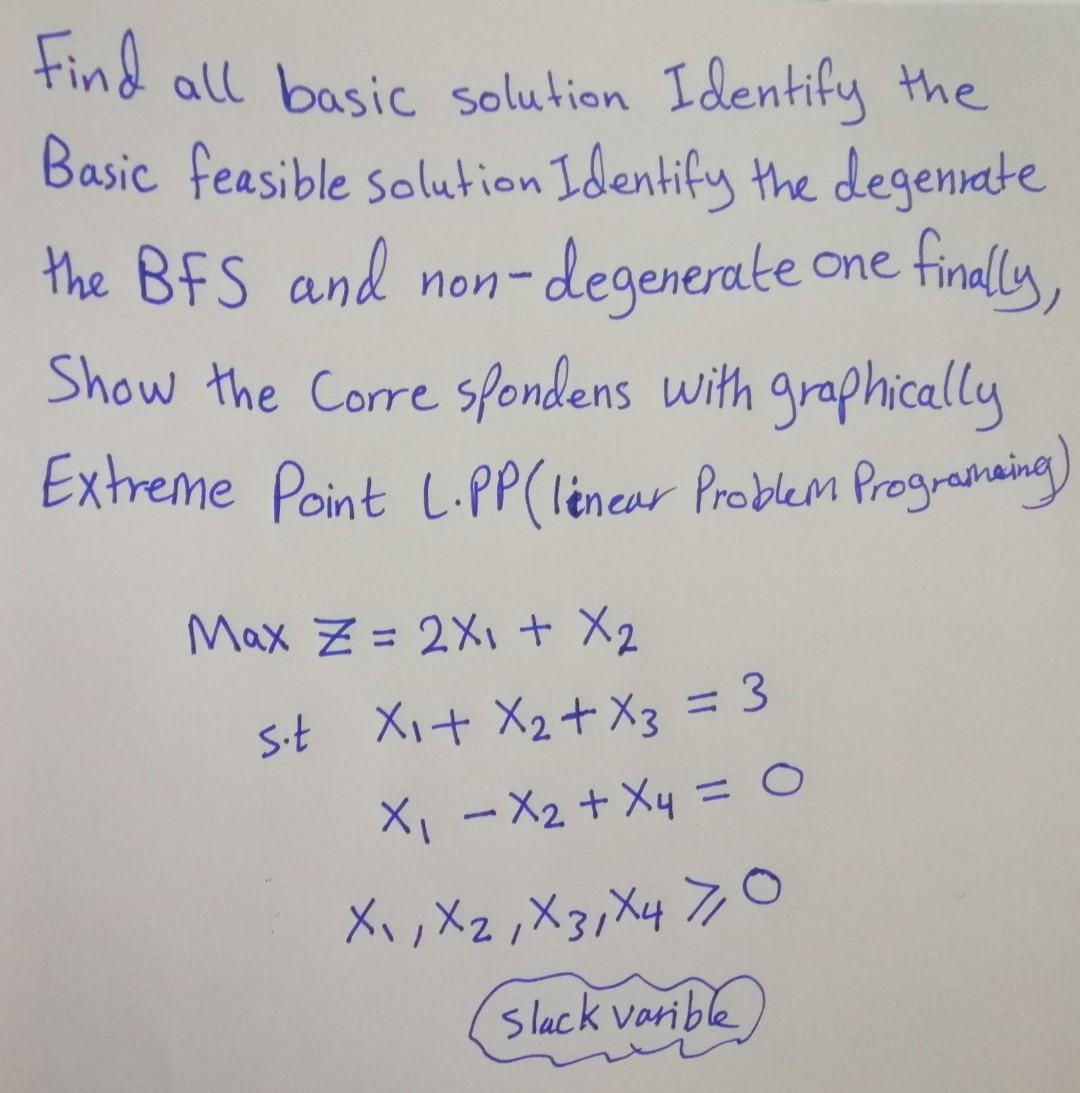 Find all basic solution Identify the
Basic feasible solution Identify the degenrate
the BFS and non-degenerate one finally,
Show the Corre spondens with graphically
Extreme Point L.PP(linear Problem Programeing)
Max Z = 2X₁ + X₂
s.t X₁ + X₂ + X₃ = 3
X₁ - X₂ + X₄ = 0
X₁, X₂, X₃, X₄ ⩾ 0
slack varible